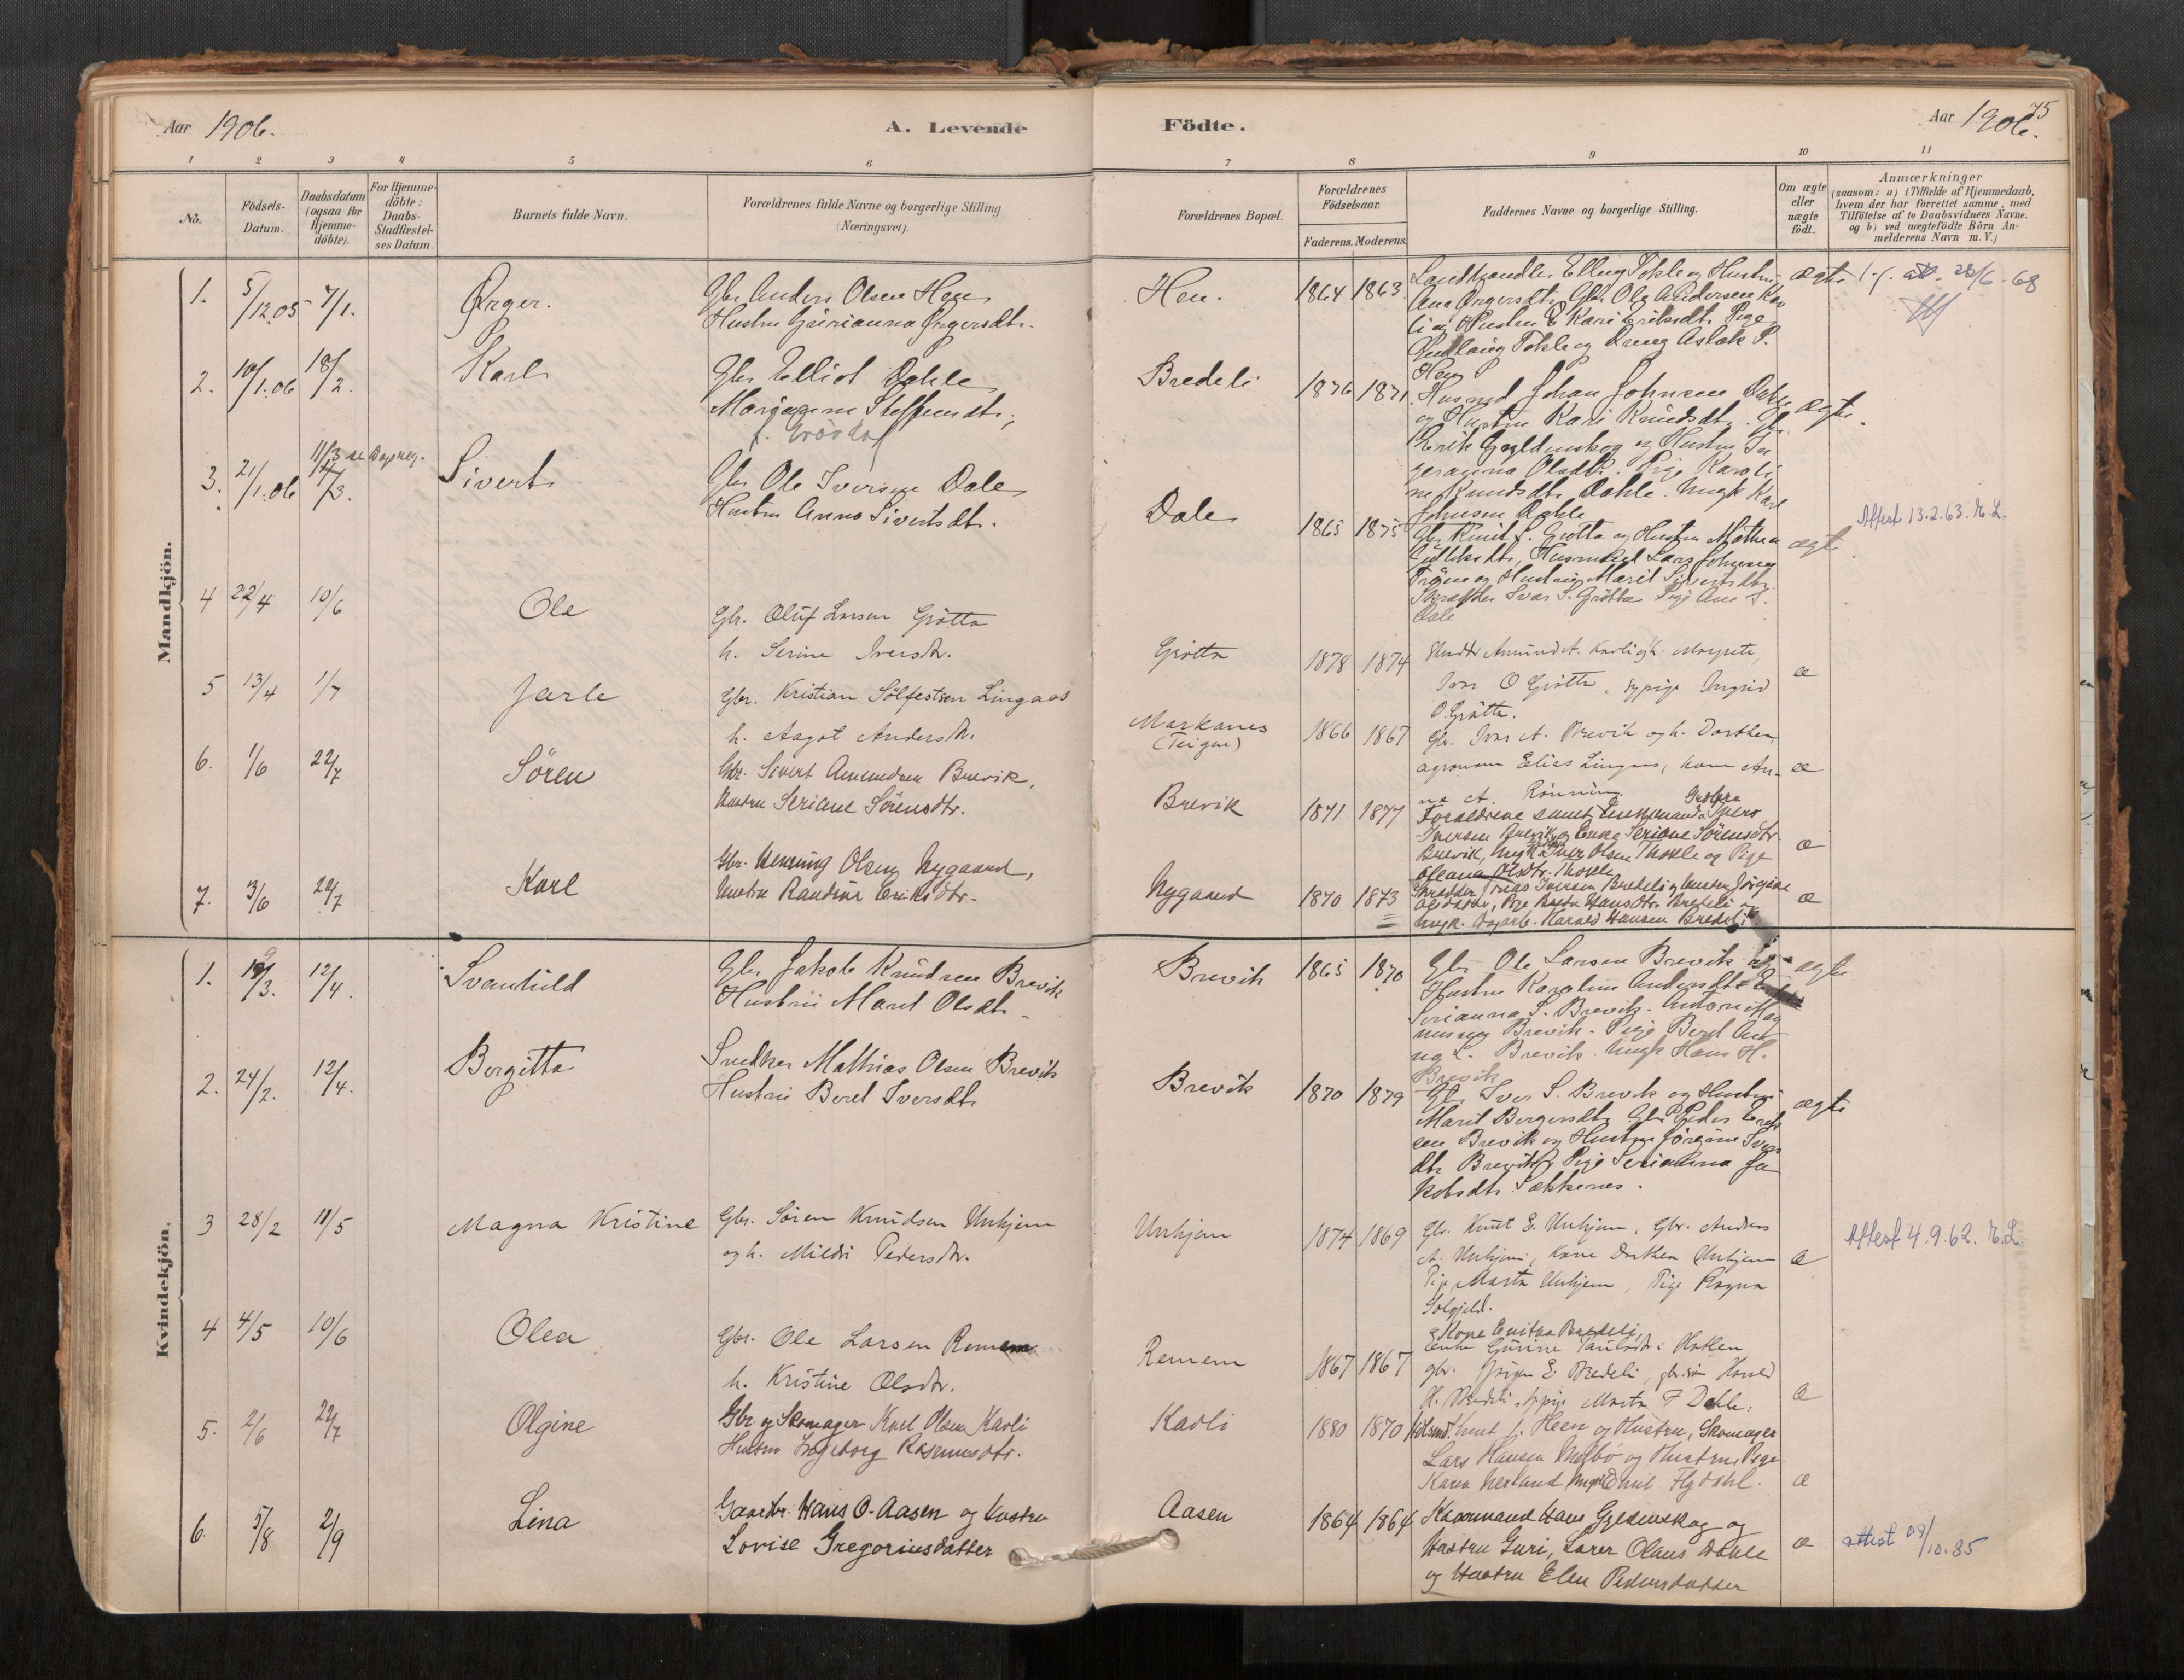 Aar 1906.
A. Levende
Födte.
Aar 1906.
75
1 2 3 4 5 6 7 8 9 10 11
No.
Födsels-Datum.
Daabsdatum (ogsaa for Hjemme-döbte).
For Hjemme-döbte: Daabs-Stadfæstel-ses Datum.
Barnets fulde Navn.
Forældrenes fulde Navne og borgerlige Stilling
(Næringsvei).
Forældrenes Bopæl.
Forældrenes Födselsaar.
Faderens. Moderens.
Faddernes Navne og borgerlige Stilling.
Om ægte eller uægte födt.
Anmærkninger
(saasom: a) i Tilfælde af Hjemmedaab,
hvem der har forrettet samme, med
Tilföielse af to Daabsvidners Navne.
og b) ved uægtefödte Börn An-
melderens Navn m. V.)
Mandkjön.
1. 5/12.05 7/1. Ørger.
Gbr Anders Olsen Hen
Hustru Gurianna Ørgersdtr.
Hen. 1864 1863
Landhandler Elling Tokle og Hustru
Ana Ørgersdtr, Gbr Ole Andersen Kav
li og Hustru Kari Eriksdtr Pige
Tokle og Dreng Aslak P.
Hen
ægte
28/6-68
2. 10/1.06 18/2. Karl
Gbr Elliot Dahle
Steffensdtr.
Bredeli 1876 1871
Husmd Johan Johnsen Dahle
og Hustru Kari Knudsdtr. Gbr
Erik Gyldenskog og Hustru In
geranna Olsdtr. Pige Karoli
ne Knudsdtr Dahle. Ungk Karl
Johnsen Dahle
ægte
3. 21/1.06 11/3 se Dapreg. Sivert
Gbr Ole Iversen Dale
Hustru Anne Sivertsdtr.
Dale 1865 1875
Gbr Knut S. Grøtta og Hustru Mathea
Husmand Lars Johnsen
og Hustru Marit Sivertsdtr
Skrædder Ivar S. Grøtta Pige Ane I.
Dale
ægte
Attest 13.2.63. R.L.
4 22/4 10/6 Ole
Gbr. Oluf Larsen Grötta
h. Serine Iversdtr.
Grötta 1878 1874
Amund A. Kavli og h. Margrete,
Ivar O Grötta, sypige Ingrid
O. Grötta.
æ
5 13/4 1/7 Jarle
Gbr. Kristian Sölfestsen Lingaas
h. Aagot Andersdtr.
Markanes
(Teigen) 1866 1867
Gbr. Ivar A. Brevik og h. Dorthea
agronom Elias Lingaas, kone An-
na A. Rönning.
æ
6. 1/6 22/7 Sören
Gbr. Sivert Amundsen Brevik,
Hustru Seriane Sörensdtr.
Brevik 1871 1877
Forældrene samt Enkemand
Iversen Brevik, Enke Seriane Sörensdtr
Brevik, Ungk. Iver Olsen Thokle og Pige
Oleana Olsdtr. Thokle
æ
7. 3/6 22/7 Karl
Gbr. Henning Olsen Nygaard,
Hustru Randine Eriksdtr.
Nygaard 1870 1873
Skrædder Jonas Iversen Bredeli og Hustru Jörgine
Olsdatter, Pige Hansdtr. Bredeli og
Ungk. Dagarb. Harald Hansen Bredeli
æ
Kvindekjön.
1. 19/3. 12/4. Svanhild
Gbr Jakob Knudsen Brevik
Hustru Marit Olsdtr
Brevik 1865 1870
Gbr Ole Larsen Brevik og
Hustru Karoline Andersdtr
Serianna S. Brevik. Anton Mag
nussen Brevik. Pige Berit An
na L. Brevik. Ungk Hans H.
Brevik
ægte
2. 24/2. 12/4. Bergitta
Snedker Mathias Olsen Brevik
Hustru Beret Iversdtr
Brevik 1870 1879
Gbr Iver S. Brevik og Hustru
Marit Bergersdtr Gbr Peder Erik
sen Brevik og Hustru Jörgine Ivers
dtr Brevik, Pige Serianna Ja
kobsdtr Sækkenes.
ægte
3 28/2 18/5 Magna Kristine
Gbr. Sören Knudsen Unhjem
og h. Mildri Pedersdtr.
Unhjem 1874 1869
Gbr. Knut E. Unhjem, Gbr. Anders
A. Unhjem, kone Dorthea Unhjem
Pige Marta Unhjem, Pige Ragna
Solgjeld.
æ
Attest 4.9.62. R.L.
4 4/5 10/6 Olea
Gbr. Ole Larsen Remem
h. Kristine Olsdtr.
Remem 1867 1867
Bredeli,
Enke Gurine Paulsdtr.
gbr. Jörgen E Bredeli, Harald
H. Bredeli, sypige Marta T Dahle.
æ
5. 2/6 22/7 Olgine
Gbr og Skomager Karl Olsen Kavli
Hustru Ingeborg Rasmusdtr.
Kavli 1880 1870
Knut J. Heen og Hustru, Skomager
Lars Hansen Melbö og Hustru, Pige
Karen Nerland Ungk Emil Flydahl.
æ
6. 5/8 2/9 Lina
Gaardbr. Hans O. Aasen og Hustru
Lovise Gregoriusdatter
Aasen 1864 1864
Kaarmand Hans Gyldenskog og
Hustru Guri, Lærer Olaus Dahle
og Hustru Elen Pedersdatter
æ
attest 09/10.85